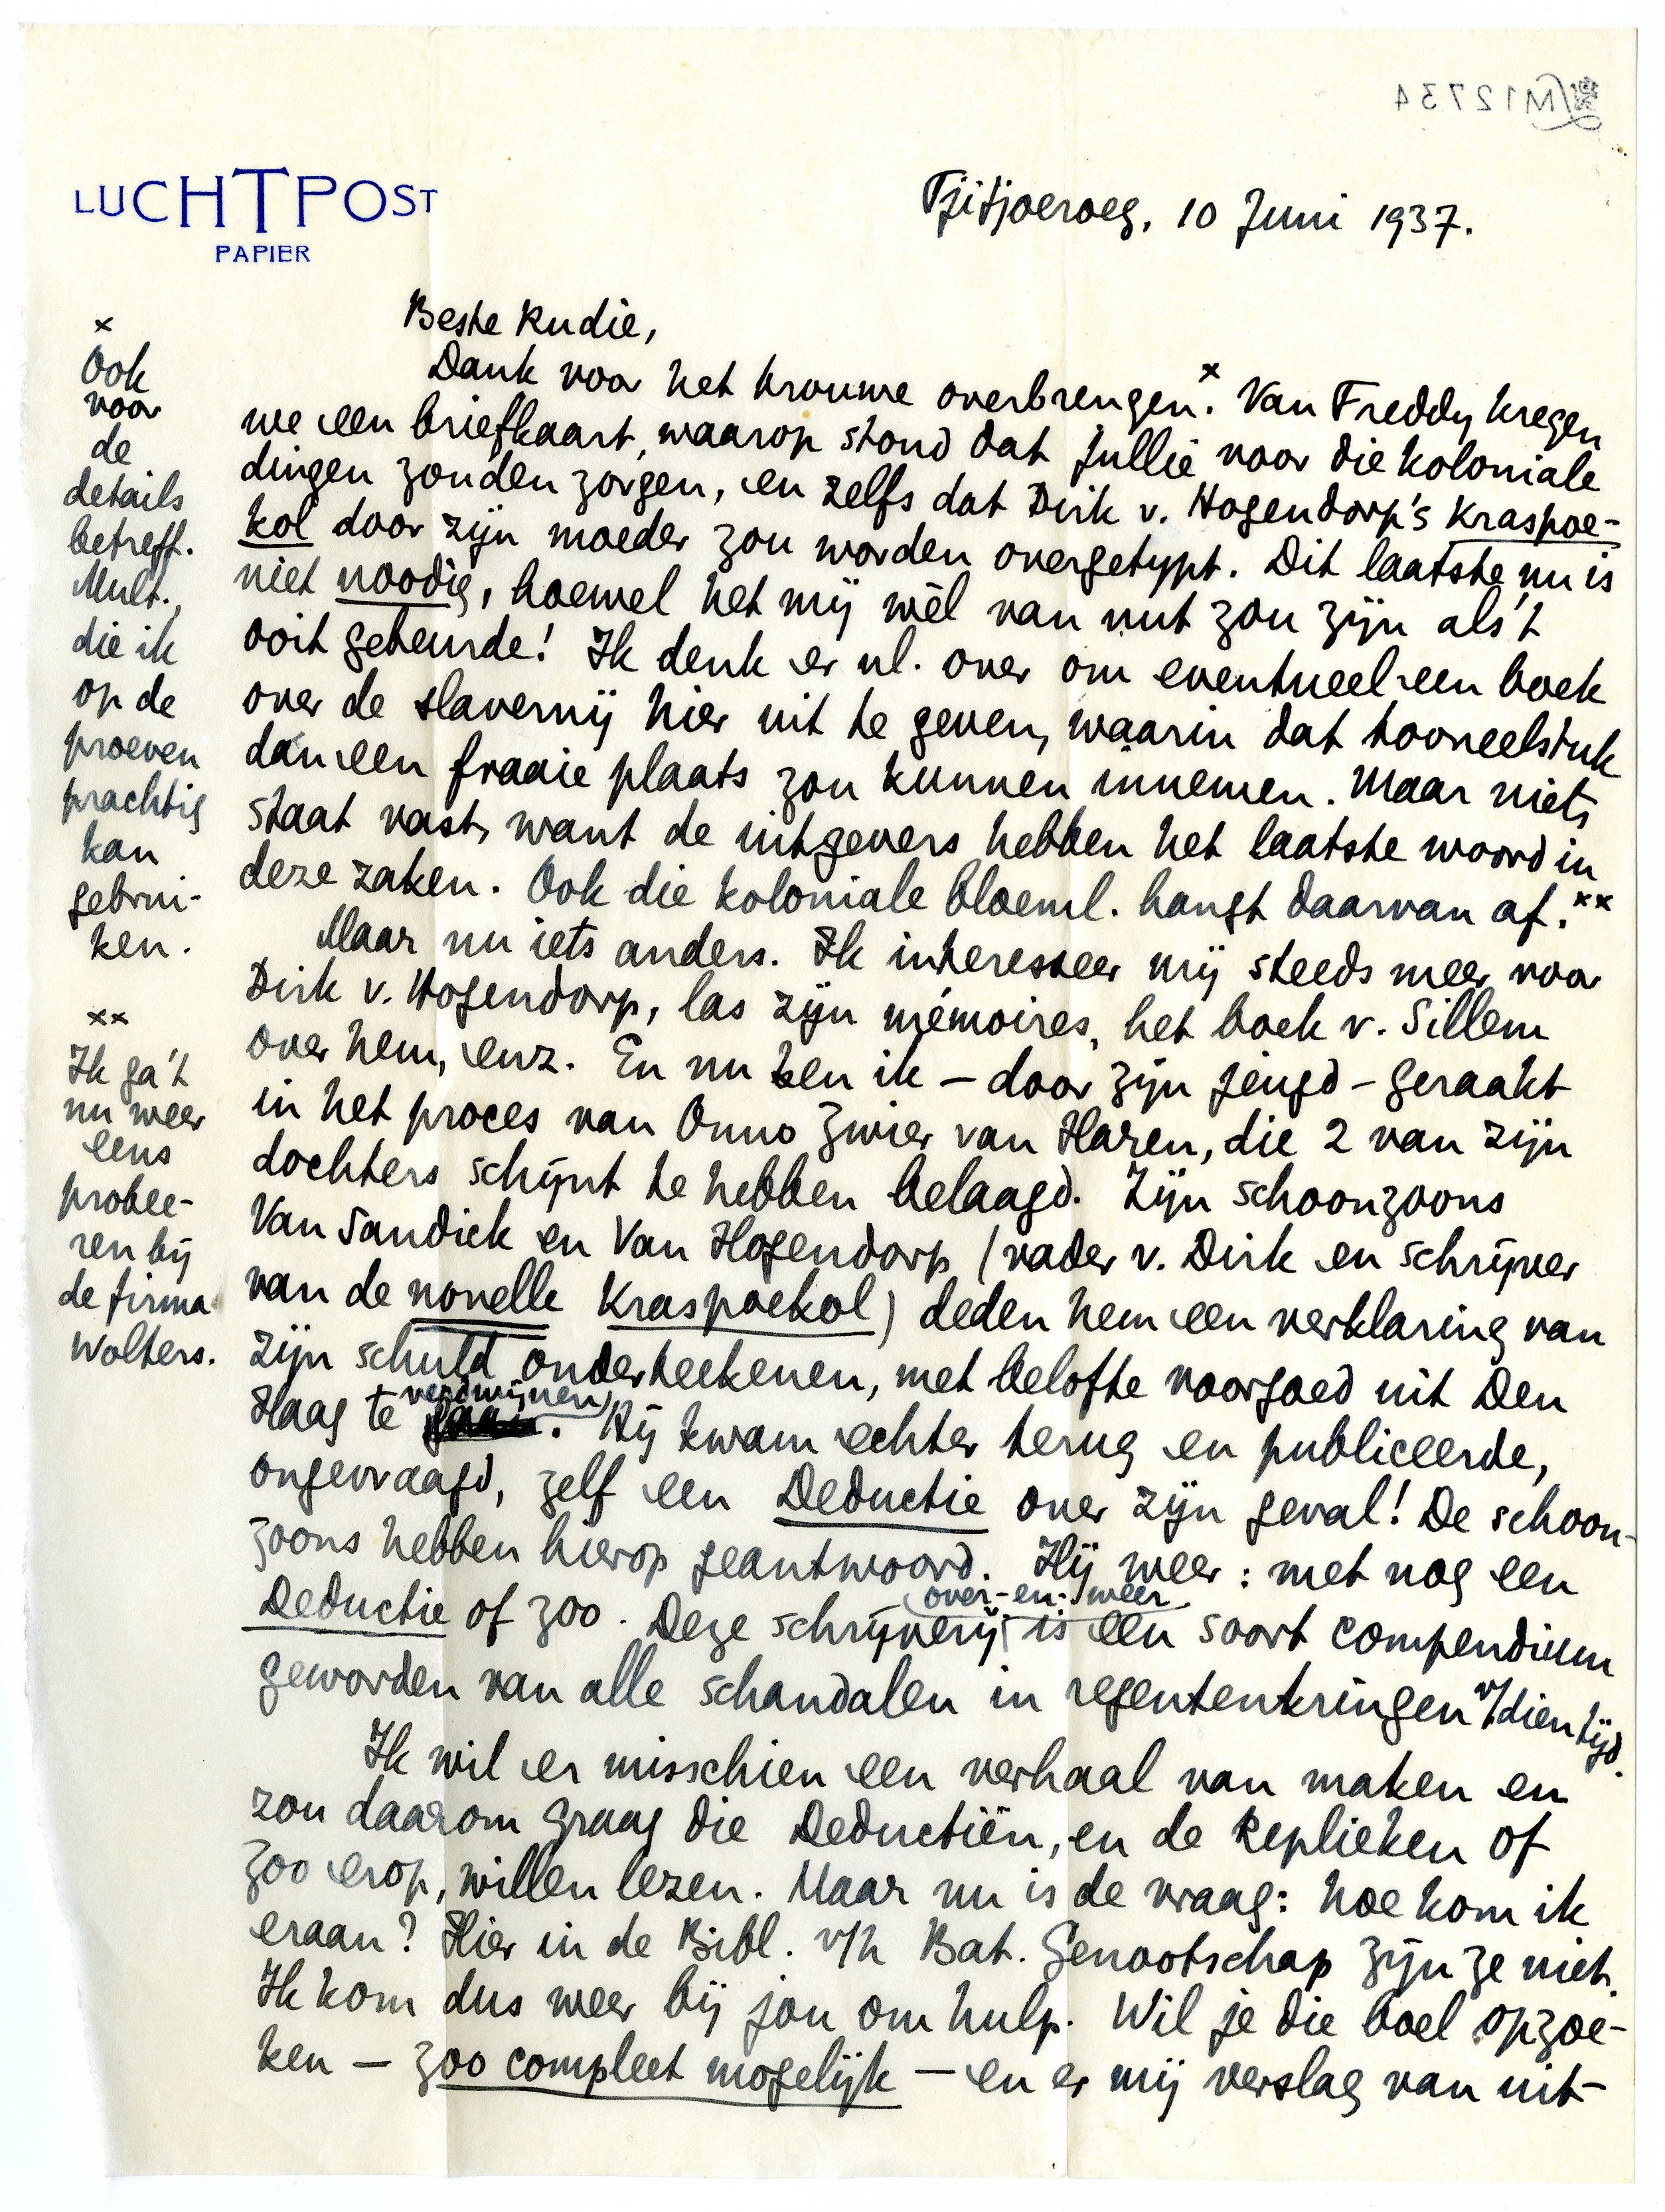 M12734
LUCHTPOST
PAPIER
Tjitjoeroeg, 10 Juni 1937.
Beste Rudie,
Dank voor het trouwe overbrengen.× Van Freddy kregen
we een briefkaart, waarop stond dat jullie voor die koloniale
dingen zouden zorgen, en zelfs dat Dirk v. Hogendorp's Kraspoe-
kol door zijn moeder zou worden overgetypt. Dit laatste nu is
niet noodig, hoewel het mij wèl van nut zou zijn als 't
ooit gebeurde! Ik denk er nl. over om eventueel een boek
over de slavernij hier uit te geven, waarin dat tooneelstuk
dan een fraaie plaats zou kunnen innemen. Maar niets
staat vast, want de uitgevers hebben het laatste woord in
deze zaken. Ook die koloniale bloeml. hangt daarvan af.××
Maar nu iets anders. Ik interesseer mij steeds meer voor
Dirk v. Hogendorp, las zijn mémoires, het boek v. Sillem
over hem, enz. En nu ben ik — door zijn jeugd — geraakt
in het proces van Onno Zwier van Haren, die 2 van zijn
dochters schijnt te hebben belaagd. Zijn schoonzoons
Van Sandick en Van Hogendorp (vader v. Dirk en schrijver
van de novelle Kraspoekol) deden hem een verklaring van
zijn schuld onderteekenen, met belofte voorgoed uit Den
Haag te verdwijnen. Hij kwam echter terug en publiceerde,
ongevraagd, zelf een Deductie over zijn geval! De schoon-
zoons hebben hierop geantwoord. Hij weer: met nog een
Deductie of zoo. Deze schrijverij over-en-weer is een soort compendium
geworden van alle schandalen in regentenkringen v/dien tijd.
Ik wil er misschien een verhaal van maken en
zou daarom graag die Deductiën, en de Replieken of
zoo erop, willen lezen. Maar nu is de vraag: hoe kom ik
eraan? Hier in de Bibl. v/h Bat. Genootschap zijn ze niet.
Ik kom dus weer bij jou om hulp. Wil je die boel opzoe-
ken — zoo compleet mogelijk — en er mij verslag van uit-
×
Ook
voor
de
details
betreff.
Mult.,
die ik
op de
proeven
prachtig
kan
gebrui-
ken.
××
Ik ga 't
nu weer
eens
probee-
ren bij
de firma
Wolters.